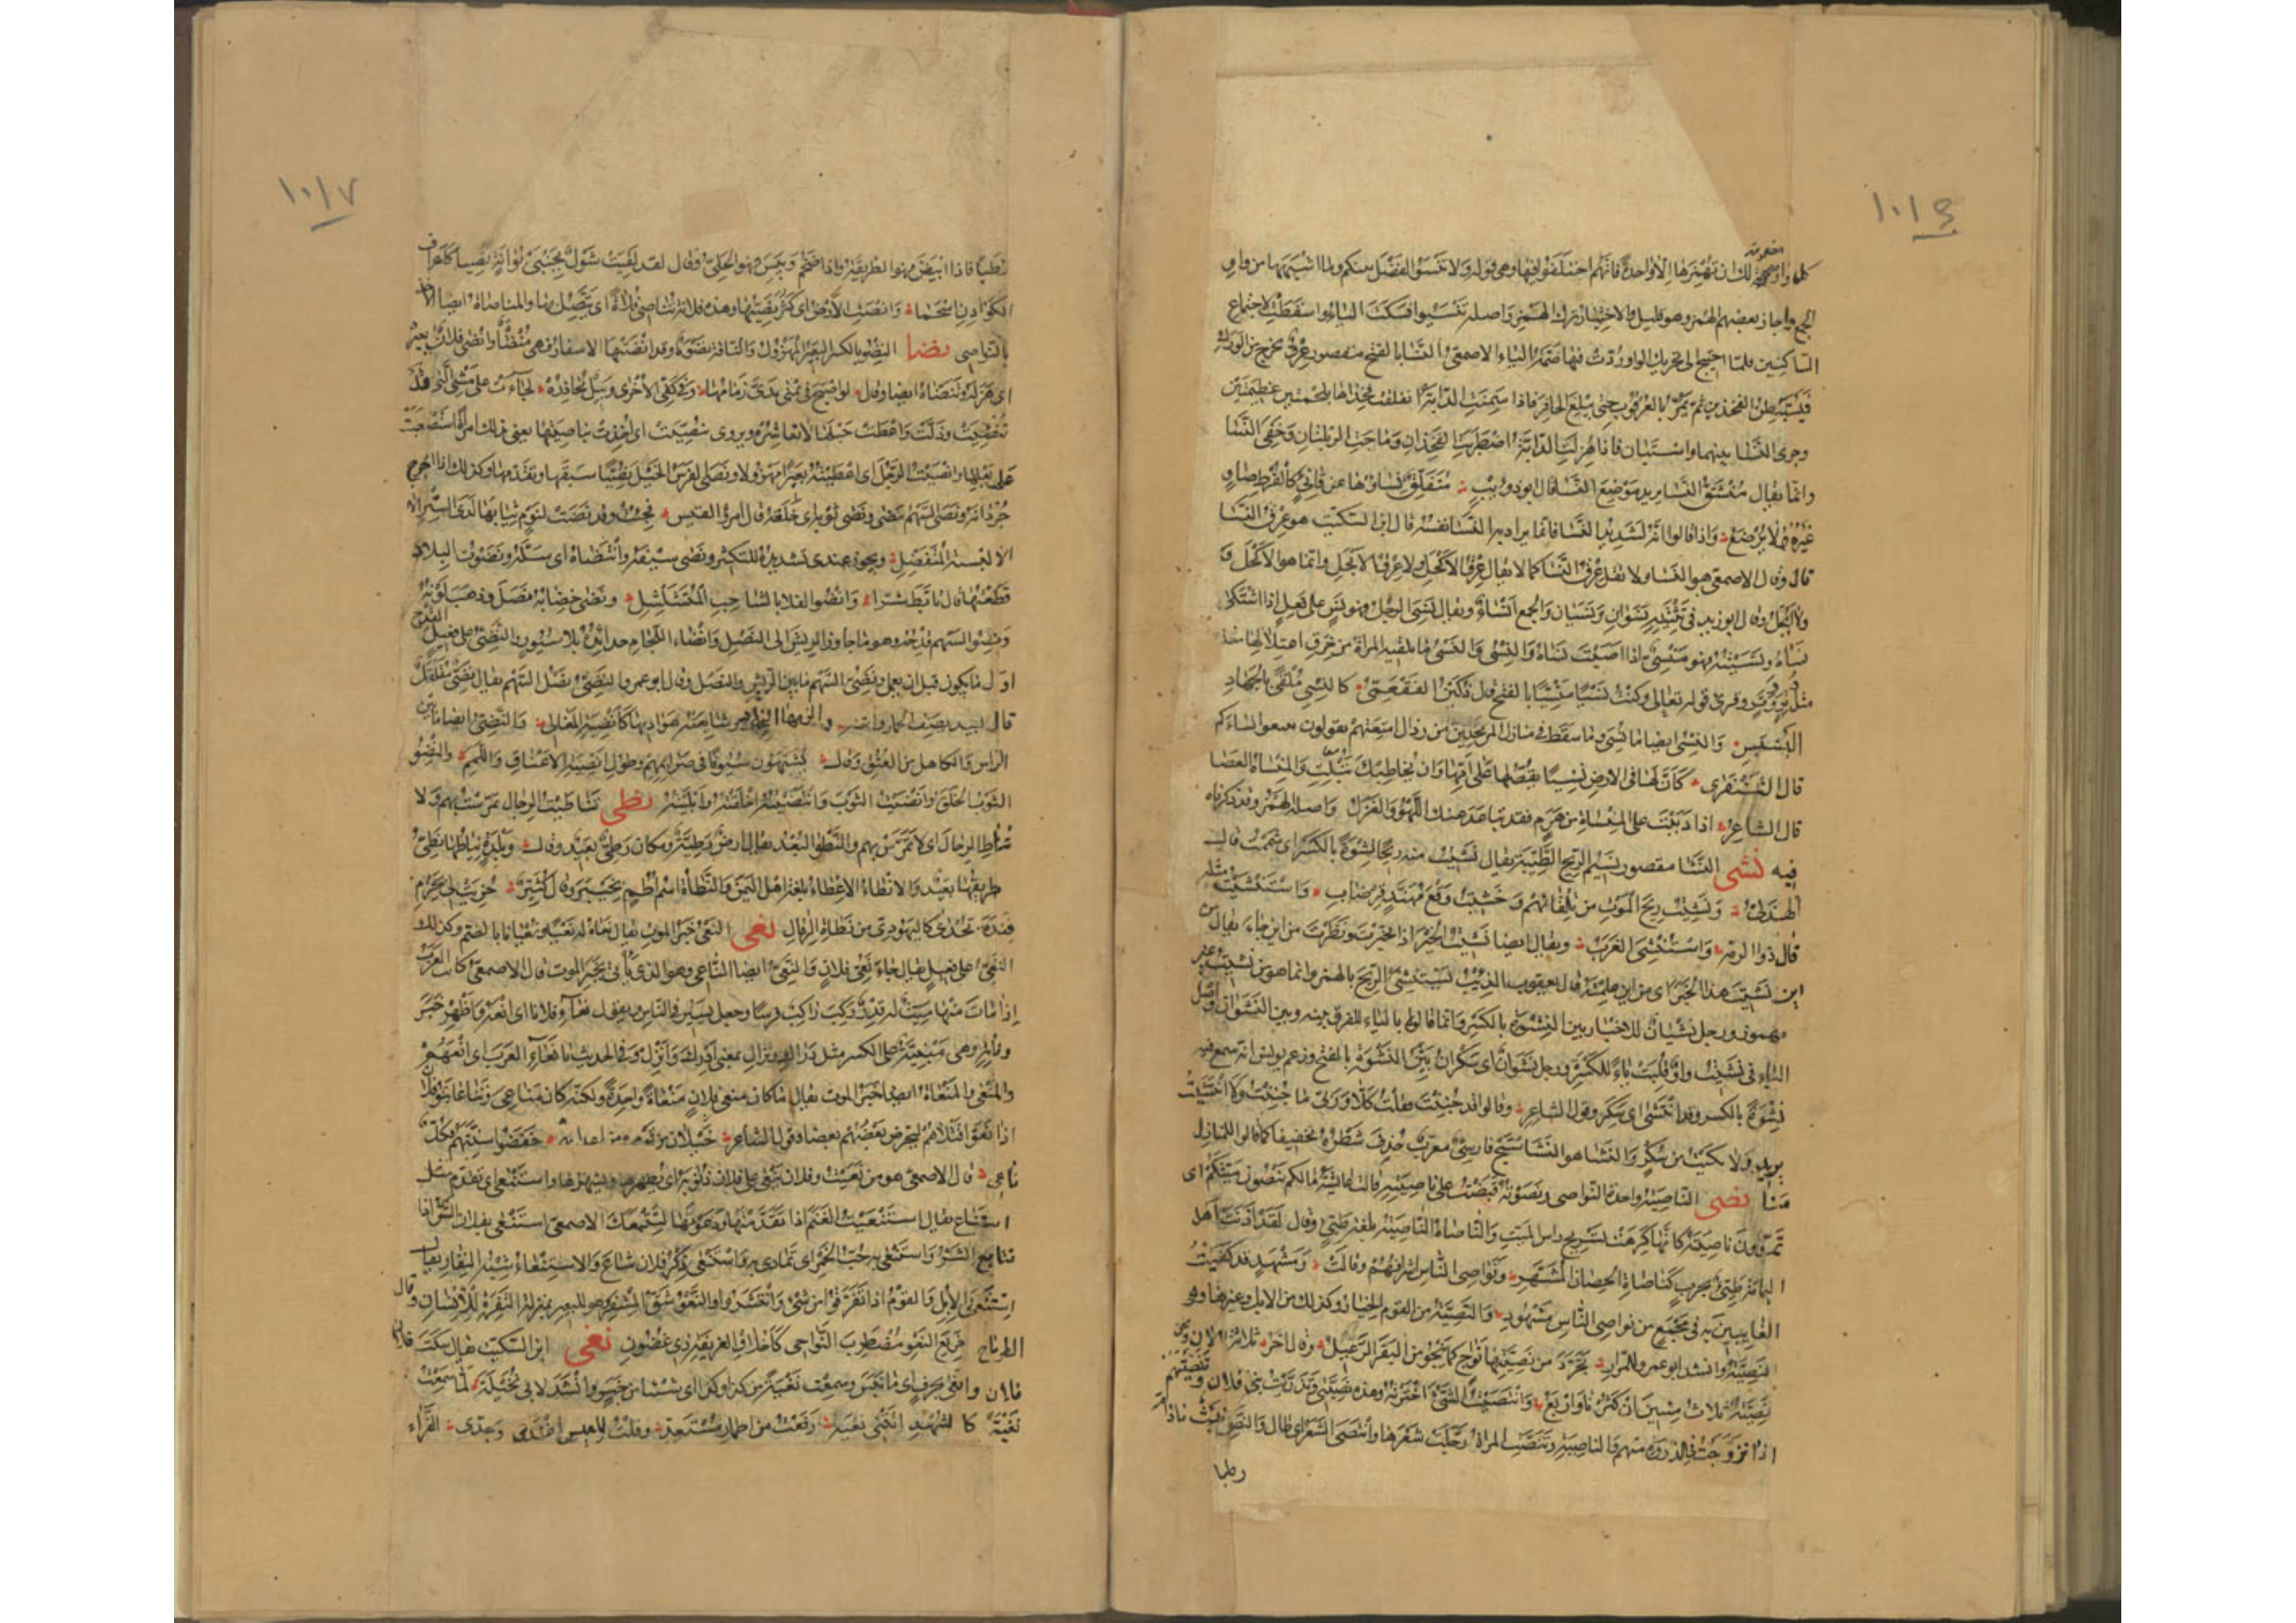 ١٠١٦
مضمومة
كل واو لك ان تهمزها الا واحدة فانهم اختلفوا فيها وهى قوله ولا تنسوا الفضل بينكم ولما اشبهها من واو
الجمع واجاز بعضهم الهمز وهو قليل والاختيار ترك الهمز واصله تنسيوا فسكنت الياء واسقطت لاجتماع
الساكنين فلما احتيج الى تحريك الواو ردت فيها ضمة الياء الاصمعى النسا بالفتح مقصور عرق يخرج من الورك
فيستبطن الفخذين ثم يمر بالعرقوب حتى يبلغ الحافر فاذا سمنت الدابة انفلقت فخذاها بلحمتين عظيمتين
وجرى النسا بينهما واستبان فاذا هزلت الدابة اضطربت الفخذان وماجت الربلتان وخفى النسا
وانما يقال منشق النسا يريد موضع النسا قال ابو ذويب متفلق انساؤها عن قانئ كالقرط صاو
غبره لا يرضع واذا قالوا انه لشديد النسا فانما يراد به النسا نفسه قال ابن السكيت هو عرق النسا
قال وقال الاصمعى هو النسا ولا تقل عرق النسا كما لا يقال عرق الاكحل ولا عرق الابجل وانما هو الاكحل
والابجل وقال ابو زيد فى تثنيته نسوان ونسيان والجمع انساء ويقال نسى الرجل فهو نس على فعل اذا اشتكى
نساه ونسيته فهو منسى اذا اصبت نساه والنسى والنسى ما تلقيه المراة من خرق اعتلالها
مثل وتر ووتر وقرئ قوله تعالى وكنت نسيا منسيا بالفتح قال دكين الفقعسى كالنسى ملقى بالجهاد
البسبس والنسى ايضا ما نسى وما سقط فى منازل المرتحلين من رذال امتعتهم يقولون تتبعوا انساءكم
قال الشنفرى كان لها فى الارض نسيا تقصه على امها وان تخاطبك تبلت والمنساة العصا
قال الشاعر اذا دببت على المنساة من هرم فقد تباعد عنك اللهو والغزل واصله الهمز وقد ذكرناه
فيه نشى النشا مقصور نسيم الريح الطيبة يقال نشيت منه ريحا نشوة بالكسر اى شممت قال
الهذلى ونشيت ريح الموت من تلقائهم وخشيت وقع مهند قرضاب واستنشيت مثله
قال ذو الرمة واستنشى الغرب ويقال ايضا نشيت الخبر اذا تخبرت ونظرت من اين جاء يقال من
اين نشيت هذا الخبر اى من اين علمته قال يعقوب الذيب يستنشئ الريح بالهمز وانما هو من نشيت غير
مهموز ورجل نشيان للاخبار بين النشوة بالكسر وانما قالوه بالياء للفرق بينه وبين النشوان واصل
الياء فى نشيت واو قلبت ياء للكسرة ورجل نشوان اى سكران بين النشوة بالفتح وزعم يونس انه سمع فيه
نشوة بالكسر وقد انتشى اى سكر وقول الشاعر وقالوا قد جننت فقلت كلا وربى ما جننت ولا انتشيت
يريد ولا بكيت من سكر والنشا هو النشاستج فارسى معرب حذف شطره تخفيفا كما قالوا للمنازل
منا نصى الناصية واحدة النواصى ونصوته قبضت على ناصيته قالت عائشة مالكم تنصون ميتكم اى
تمدون ناصيته كانها كرهت تسريح راس الميت والناصاة الناصية بلغة طيئ وقال لقد آذنت اهل
اليمامة طيئ بحرب كناصاة الحصان المشهر ونواصى الناس اشرافهم وقالت ومشهد قد كفيت
الغايبين به فى مجمع من نواصى الناس مشهود والنصية من القوم الخيار وكذلك من الابل وغيرها وهى
نصية وانشد ابو عمرو للمرار تجرد من نصيتها نواج كما ينجو من البقر الرعيل وقال آخر ثلاثة الاف ونحن
نصية ثلاث مئين ان كثرنا واربع وانتصيت الشئ اخترته وهذه نصيتى وتذريت بنى فلان وتنصيتهم
اذا تزوجت فى الذروة منهم والناصية وتنصت المراة رجلت شعرها وانتصى الشعر اى طال والنصى نبت ما دام
رطبا
١٠١٧
رطبا فاذا ابيض فهو الطريفة واذا ضخم ويبس فهو الحلى وقال لقد لقيت شول بجنبى بوانة نصيا كاعراف
الكوادن اسحما وانصت الارض اى كثر نصيها وهذه فلاة تناصى فلاة اى تتصل بها والمناصاة ايضا الاخذ
بالنواصى نضا النضو بالكسر البعير المهزول والناقة نضوة وقد انضتها الاسفار فهى منضاة وانضى فلان بعيره
اى هزله وتنضاه ايضا وقال لو اصبح فى يمنى يدى زمامها وفى كفى الاخرى وبيل تحاذره لجاءت على مشى التى قد
تنضيت وذلت واعطت حبلها لا تعاسره ويروى تنصيت اى اخذت بناصيتها يعنى بذلك امراة استصعبت
على بعلها وانضيت الرجل اى اعطيته بعيرا مهزولا ونضا الفرس الخيل نضيا سبقها وتقدمها وكذلك اذا اخرج
جردانه ونضا السهم مضى ونضى ثوبه اى خلعه قال امرؤ القيس فجئت وقد نضت لنوم ثيابها لدى الستر الا
لبسة المتفضل ويجوز عندى تشديده للتكثير ونضى سيفه وانتضاه اى سله ونضوت البلاد
قطعتها قال تابط شرا وانضو الفلا بالشاحب المتشلشل ونضى خضابه نصل وذهب لونه
ونضو السهم قدحه وهو ما جاوز الريش الى النصل وانضاء اللجام حدائده بلا سيور والنضى على فعيل القدح
اول ما يكون قبل ان يعمل ونضى السهم ما بين الريش والنصل وقال ابو عمرو النضى نصل السهم يقال نضى مقلقل
قال لبيد يصف الحمار واتنه والزمها النجاد وشايعته هواديها كانضية المغالى والنضى ايضا ما بين
الراس والكاهل من العنق وقال يشبهون سيوفا فى صرائمهم وطول انضية الاعناق واللمم والنضو
الثوب الخلق وانضيت الثوب وانتضيته اخلقته وابليته نطى تناطيت الرجال تمرست بهم ولا
تناط الرجال اى لا تمرس بهم والنطو البعد يقال ارض نطية ومكان نطى بعيد وقال وبلدة نياطها نطى
طريقها بعيد والانطاء الاعطاء بلغة اهل اليمن والنطاة اسم اطم بخيبر وقال كثير حزيت لى بحزم
فيدة تحدى كاليهودى من نطاة الرقال نعى النعى خبر الموت يقال نعاه له نعيا ونعيانا بالضم وكذلك
النعى على فعيل يقال جاء نعى فلان والنعى ايضا الناعى وهو الذى ياتى بخبر الموت قال الاصمعى كانت العرب
اذا مات منها ميت له قدر ركب راكب فرسا وجعل يسير فى الناس ويقول نعاء فلانا اى انعه واظهر خبر
وفاته وهى مبنية على الكسر مثل دراك ونزال بمعنى ادرك وانزل وفى الحديث يا نعاء العرب اى انعهم
والمنعى والمنعاة ايضا خبر الموت يقال ما كان منعى فلان منعاة واحدة ولكنه كان مناعى وتناعا بنو فلان
اذا نعوا قتلاهم ليحرض بعضهم بعضا وقول الشاعر خيلان من قومى ومن اعدائهم خفضوا اسنتهم فكل
ناعى قال الاصمعى هو من نعيت وفلان ينعى على فلان ذنوبه اى يظهرها ويشهرها واستنعى اى تقدم مثل
استناع يقال استنعيت الغنم اذا تقدمتها ودعوتها لتتبعك الاصمعى استنعى بفلان الشر اذا
تتابع الشر واستنعى به حب الخمر اى تمادى به واستنعى ذكر فلان شاع والاستنعاء شبه النفار يقال
استنعى الابل والقوم اذا تفرقوا من شئ وانتشروا والنعو شق المشفر وهو للبعير بمنزلة النقرة للانسان وقال
الطرماح خريع النعو مضطرب النواحى كاخلاق الغريفة ذى غضون نغى ابن السكيت يقال سكت فلان
فلان وانغى بحرف اى ما نبس وسمعت نغية من كذا وكذا اى شيئا من خبر وانشد لابى نخيلة لما سمعت
نغية كالشهد اتتنى نغية رفعت من اطمار مستعد وقلت للعيس اغتدى وجدى الفراء